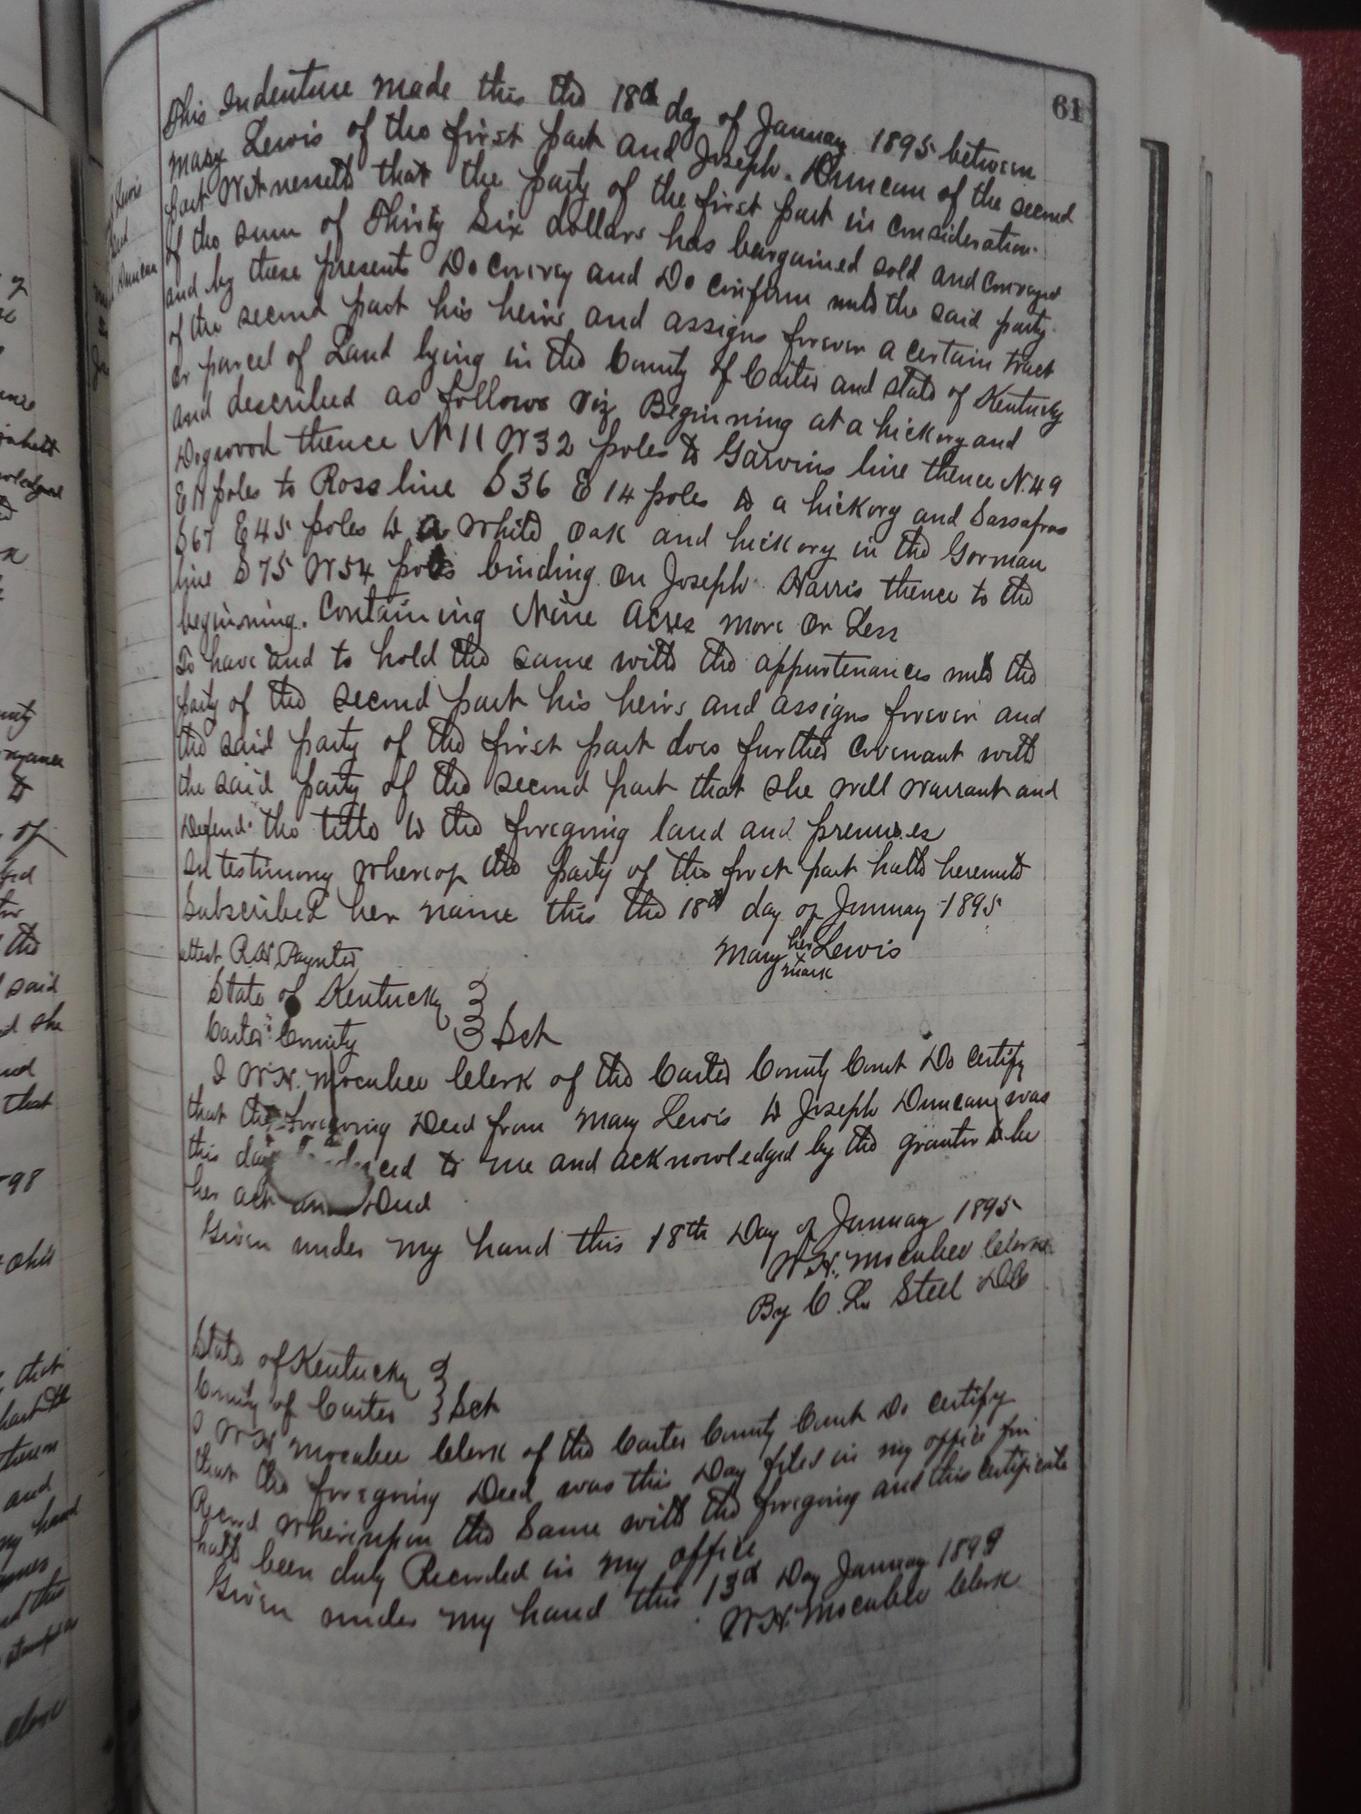 61
This Indenture made this the 18th day of January 1895 between
Mary Lewis of the first part and Joseph Duncan of the second
part Witnesseth that the party of the first part in consideration
of the sum of Thirty Six dollars has bargained sold and conveyed
and by these presents Do convey and Do confirm unto the said party
of the second part his heirs and assigns forever a certain tract
or parcel of Land lying in the County of Carter and state of Kentucky
and described as follows viz Beginning at a hickory and
Dogwood thence N 11 W 32 poles to Garvins line thence N. 49
E 11 poles to Ross line S 36 E 14 poles to a hickory and Sassafras
S 67 E 45 poles to a white oak and hickory in the Gorman
line S 75 W 54 poles binding on Joseph Harris thence to the
beginning. Containing Nine Acres more or Less
To have and to hold the same with the appurtenances unto the
party of the second part his heirs and assigns forever and
the said party of the first part does further covenant with
the said party of the second part that she will warrant and
Defend the title to the foregoing land and premises
In testimony whereof the party of the first part hath hereunto
Subscribed her name this the 18th day of January 1895
attest R W Paynter
Mary her Lewis
mark
State of Kentucky
Carter County Sct
I W.H. Mocabee Clerk of the Carter County Court Do certify
that the foregoing Deed from Mary Lewis to Joseph Duncan was
this day produced to me and acknowledged by the grantor to be
her act and Deed
Given under my hand this 18th Day of January 1895
W.H. Mocabee Clerk
By C. L. Steel D C
State of Kentucky
County of Carter Sct
I W H Mocabee Clerk of the Carter County Court Do certify
that the foregoing Deed was this Day filed in my office for
Record whereupon the Same with the foregoing and this certificate
hath been duly Recorded in my office
Given under my hand this 13th Day January 1899
W.H. Mocabee Clerk